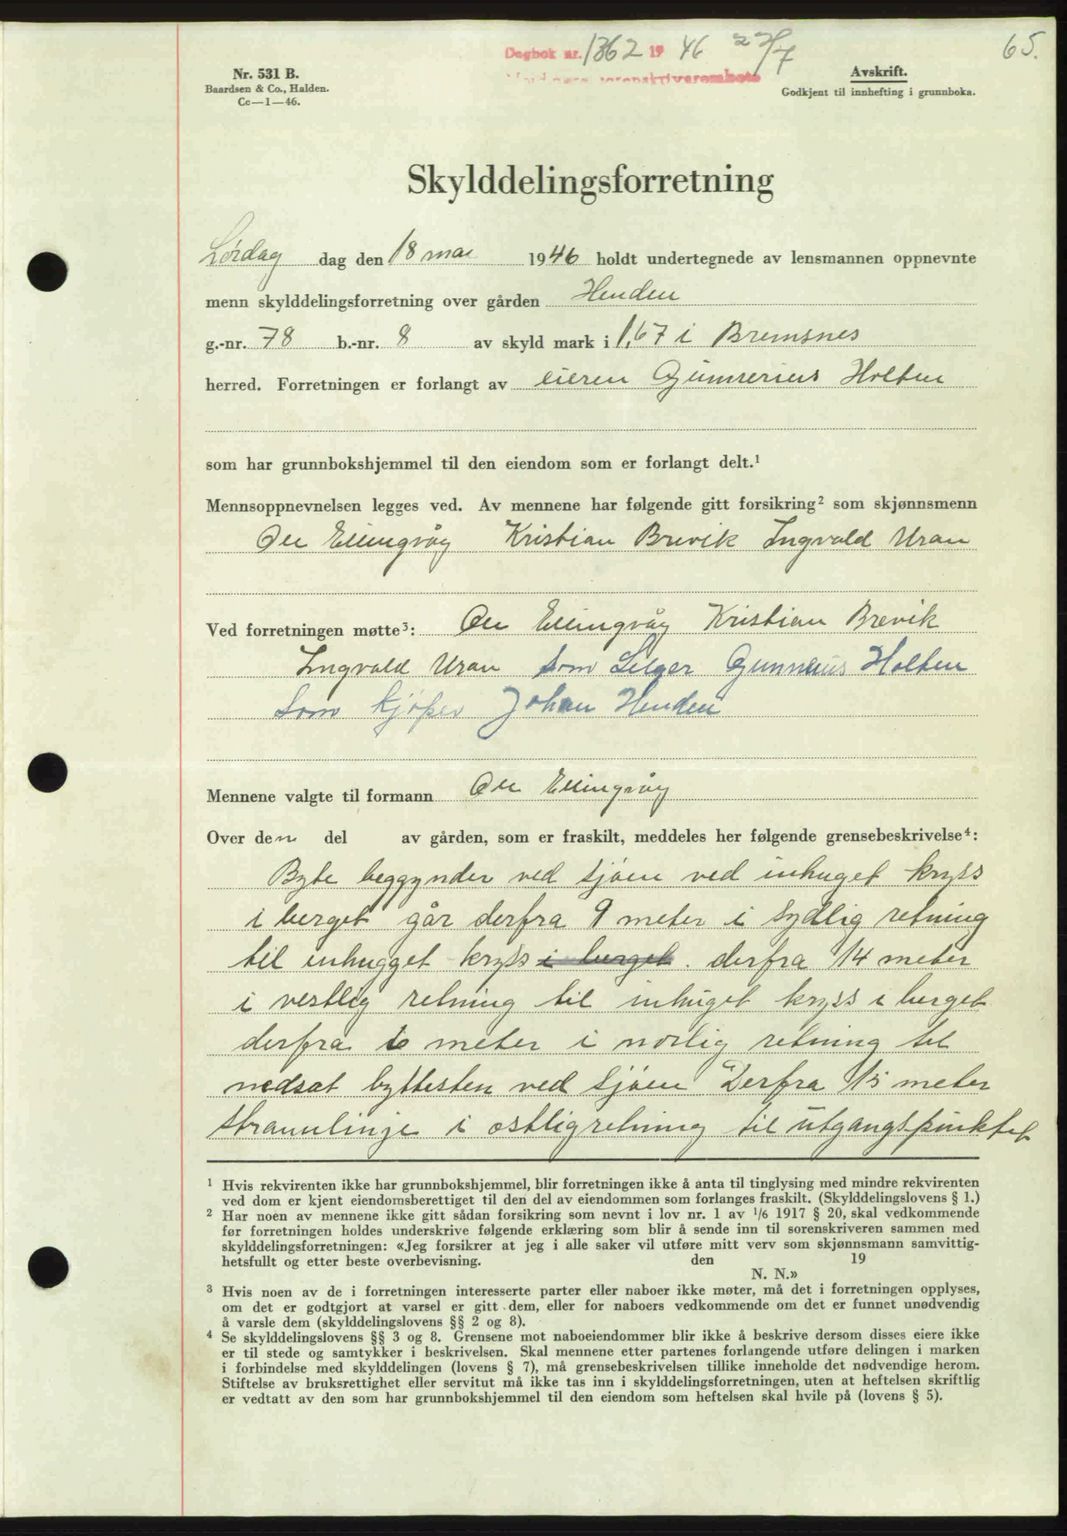 Dagbok nr. 1362 19 46 22/7
65.
Nr. 531 B.
Baardsen & Co., Halden.
Cc—1—46.
Avskrift.
Godkjent til innhefting i grunnboka.
Skylddelingsforretning
Lördag dag den 18 mai 1946 holdt undertegnede av lensmannen oppnevnte
menn skylddelingsforretning over gården Henden
g.-nr. 78 b.-nr. 8 av skyld mark i 1,67 i Bremsnes
herred. Forretningen er forlangt av eieren Gunnerius Holten
som har grunnbokshjemmel til den eiendom som er forlangt delt.¹
Mennsoppnevnelsen legges ved. Av mennene har følgende gitt forsikring² som skjønnsmenn
Ole Ellingvåg Kristian Brevik Ingvald Uran
Ved forretningen møtte³: Ole Ellingvåg Kristian Brevik
Ingvald Uran som Selger Gunnerius Holten
Som kjöper Johan Henden
Mennene valgte til formann Ole Ellingvåg
Over den del av gården, som er fraskilt, meddeles her følgende grensebeskrivelse⁴:
Byte beggynder ved sjöen ved inhuget kryss
i berget går derfra 9 meter i sydlig retning
til inhugget kryss i berget. derfra 14 meter
i vestlig retning til inhuget kryss i berget
derfra 6 meter i norlig retning til
nedsat byttesten ved sjöen Derfra 15 meter
stramlinje i ostlig retning til utgangspunktet
¹ Hvis rekvirenten ikke har grunnbokshjemmel, blir forretningen ikke å anta til tinglysing med mindre rekvirenten
ved dom er kjent eiendomsberettiget til den del av eiendommen som forlanges fraskilt. (Skylddelingslovens § 1.)
² Har noen av mennene ikke gitt sådan forsikring som nevnt i lov nr. 1 av 1/6 1917 § 20, skal vedkommende
før forretningen holdes underskrive følgende erklæring som blir å sende inn til sorenskriveren sammen med
skylddelingsforretningen: «Jeg forsikrer at jeg i alle saker vil utføre mitt verv som skjønnsmann samvittig-
hetsfullt og etter beste overbevisning. den 19
N. N.»
³ Hvis noen av de i forretningen interesserte parter eller naboer ikke møter, må det i forretningen opplyses,
om det er godtgjort at varsel er gitt dem, eller for naboers vedkommende om det er funnet unødvendig
å varsle dem (skylddelingslovens §§ 2 og 8).
⁴ Se skylddelingslovens §§ 3 og 8. Grensene mot naboeiendommer blir ikke å beskrive dersom disses eiere ikke
er til stede og samtykker i beskrivelsen. Skal mennene etter partenes forlangende utføre delingen i marken
i forbindelse med skylddelingen (lovens § 7), må grensebeskrivelsen tillike inneholde det nødvendige herom.
Stiftelse av bruksrettighet eller servitut må ikke tas inn i skylddelingsforretningen, uten at heftelsen skriftlig
er vedtatt av den som har grunnbokshjemmel til den eiendom som heftelsen skal hvile på (lovens § 5).